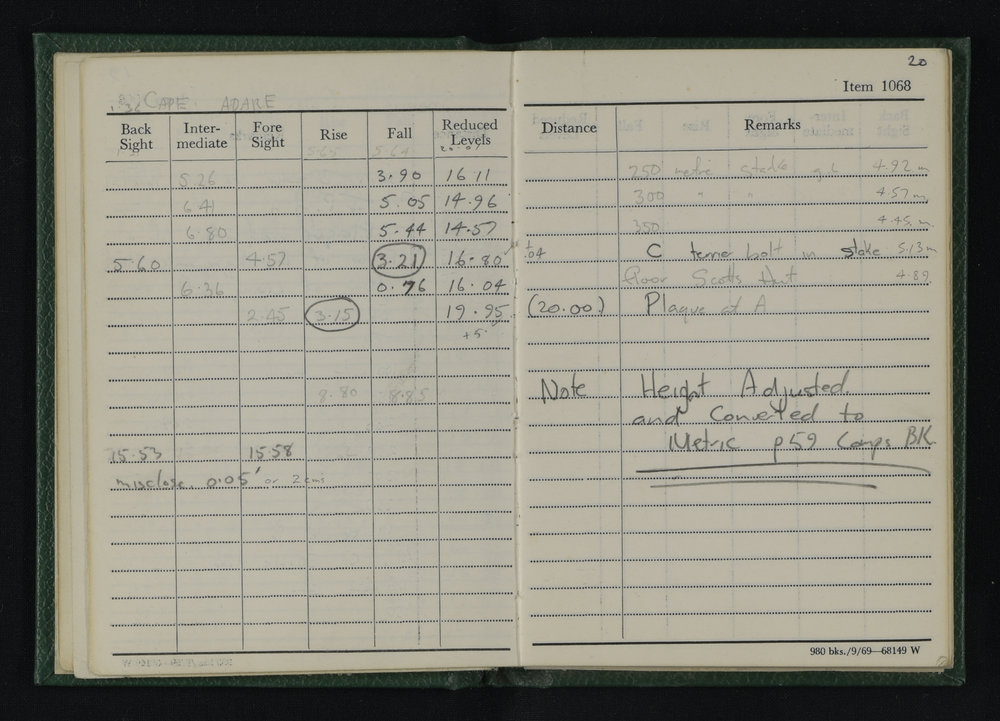 20
Item 1068
CAPE ADARE
Back Sight Inter- mediate Fore Sight Rise Fall Reduced Levels Distance Remarks
5.26 3.90 16.11 250 metre stake 4.92 m
6.41 5.05 14.96 300 " " 4.57 m
6.80 5.44 14.57 350 4.45 m
5.60 4.57 3.21 16.80 C terrier bolt in stake 5.13 m
6.36 0.76 16.04 floor Scotts Hut 4.89
2.45 3.15 19.95 (20.00) Plaque at A
+5
9.80 8.85 Note Height Adjusted
and Converted to
15.53 15.58 Metric p59 Comps BK
misclose 0.05' or 2 cms
980 bks./9/69—68149 W